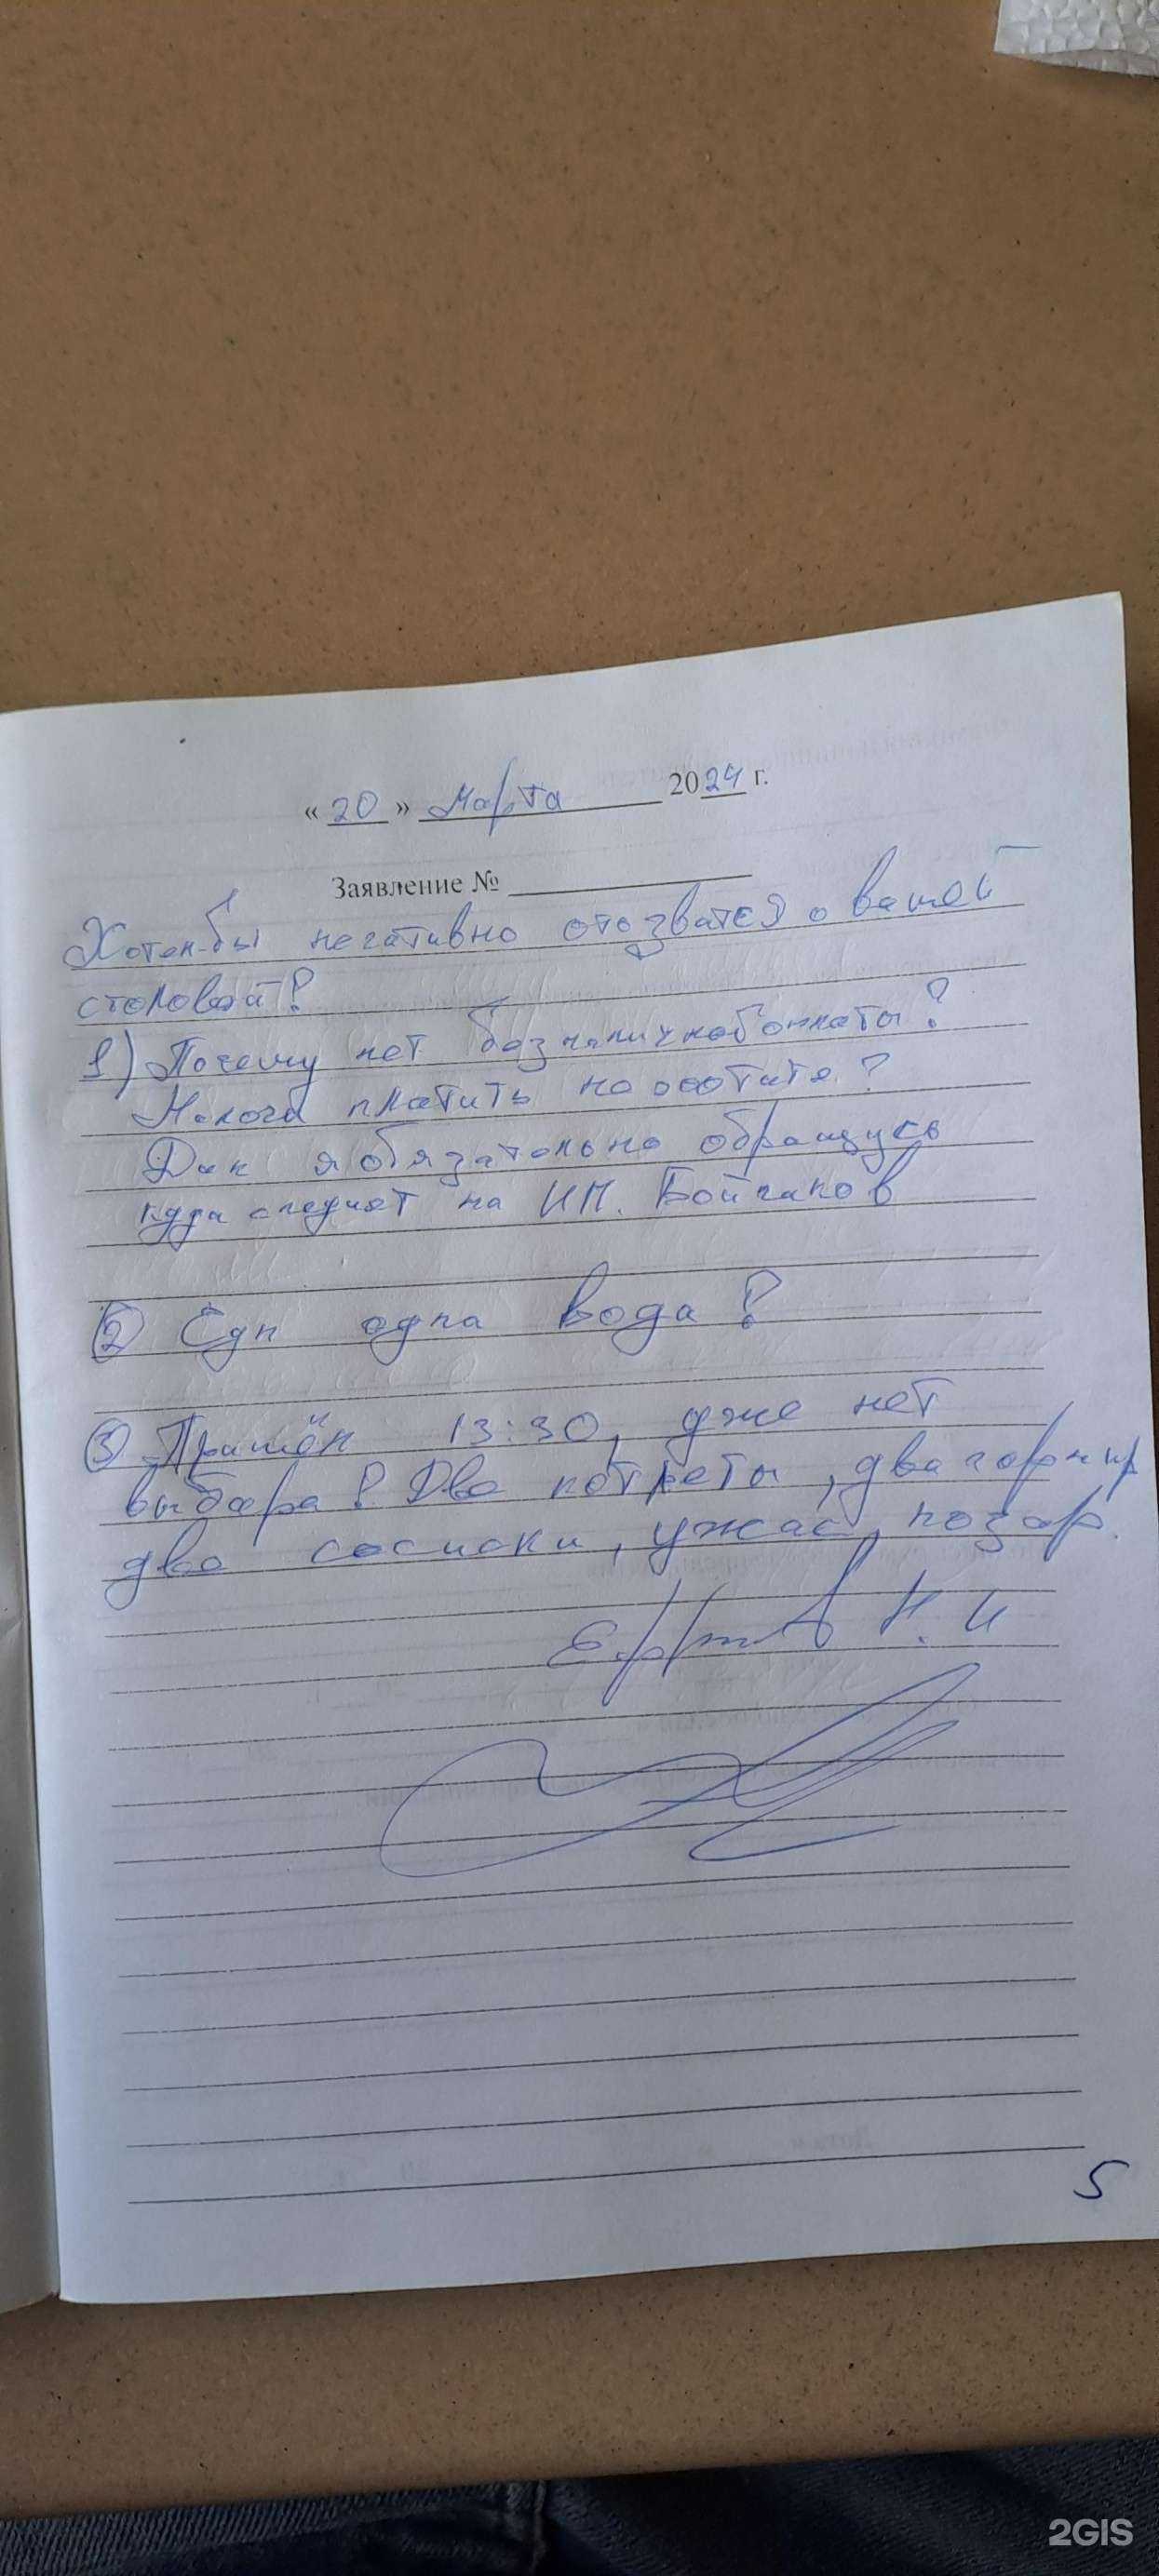 « 20 » Марта 2024 г.
Заявление №
Хотел-бы негативно отозватся о вашей
столовой!
1) Почему нет безналичной оплаты?
Налоги платить не хотите?
Дак я обязательно обращусь
куда следует на ИП. Бойчаков
2 Еда одна вода!
3 Пришёл 13:30, уже нет
выбора! Две котлеты, два гарнир
две сосиски, ужас, позор.
Н. И
5
2GIS